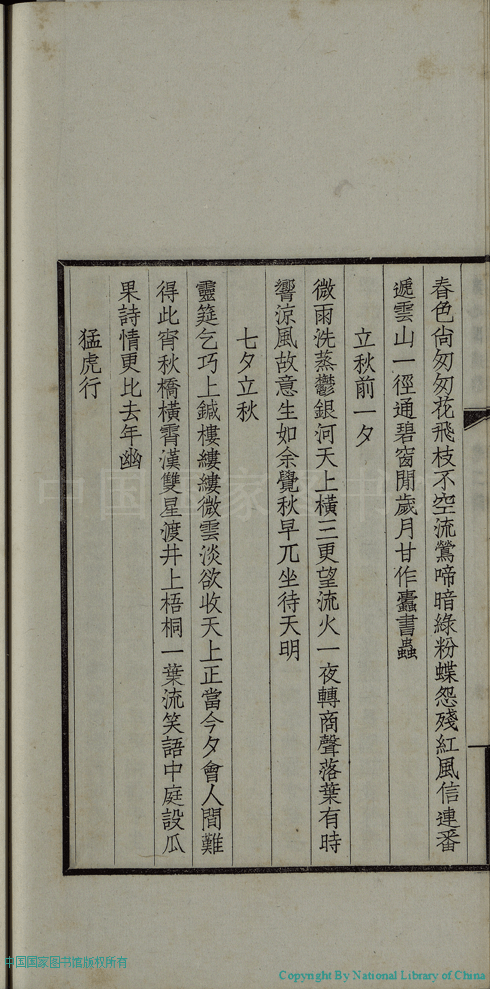 春色尙匆匆花飛枝不空流鶯啼暗綠粉蝶怨殘紅風信連番
遞雲山一徑通碧窗閒歲月甘作蠹書蟲
立秋前一夕
微雨洗蒸鬱銀河天上橫三更望流火一夜轉商聲落葉有時
響涼風故意生如余覺秋早兀坐待天明
七夕立秋
靈筵乞巧上鍼樓縷縷微雲淡欲收天上正當今夕會人間難
得此宵秋橋橫霄漢雙星渡井上梧桐一葉流笑語中庭設瓜
果詩情更比去年幽
猛虎行
中国国家图书馆版权所有
Copyright By National Library of China